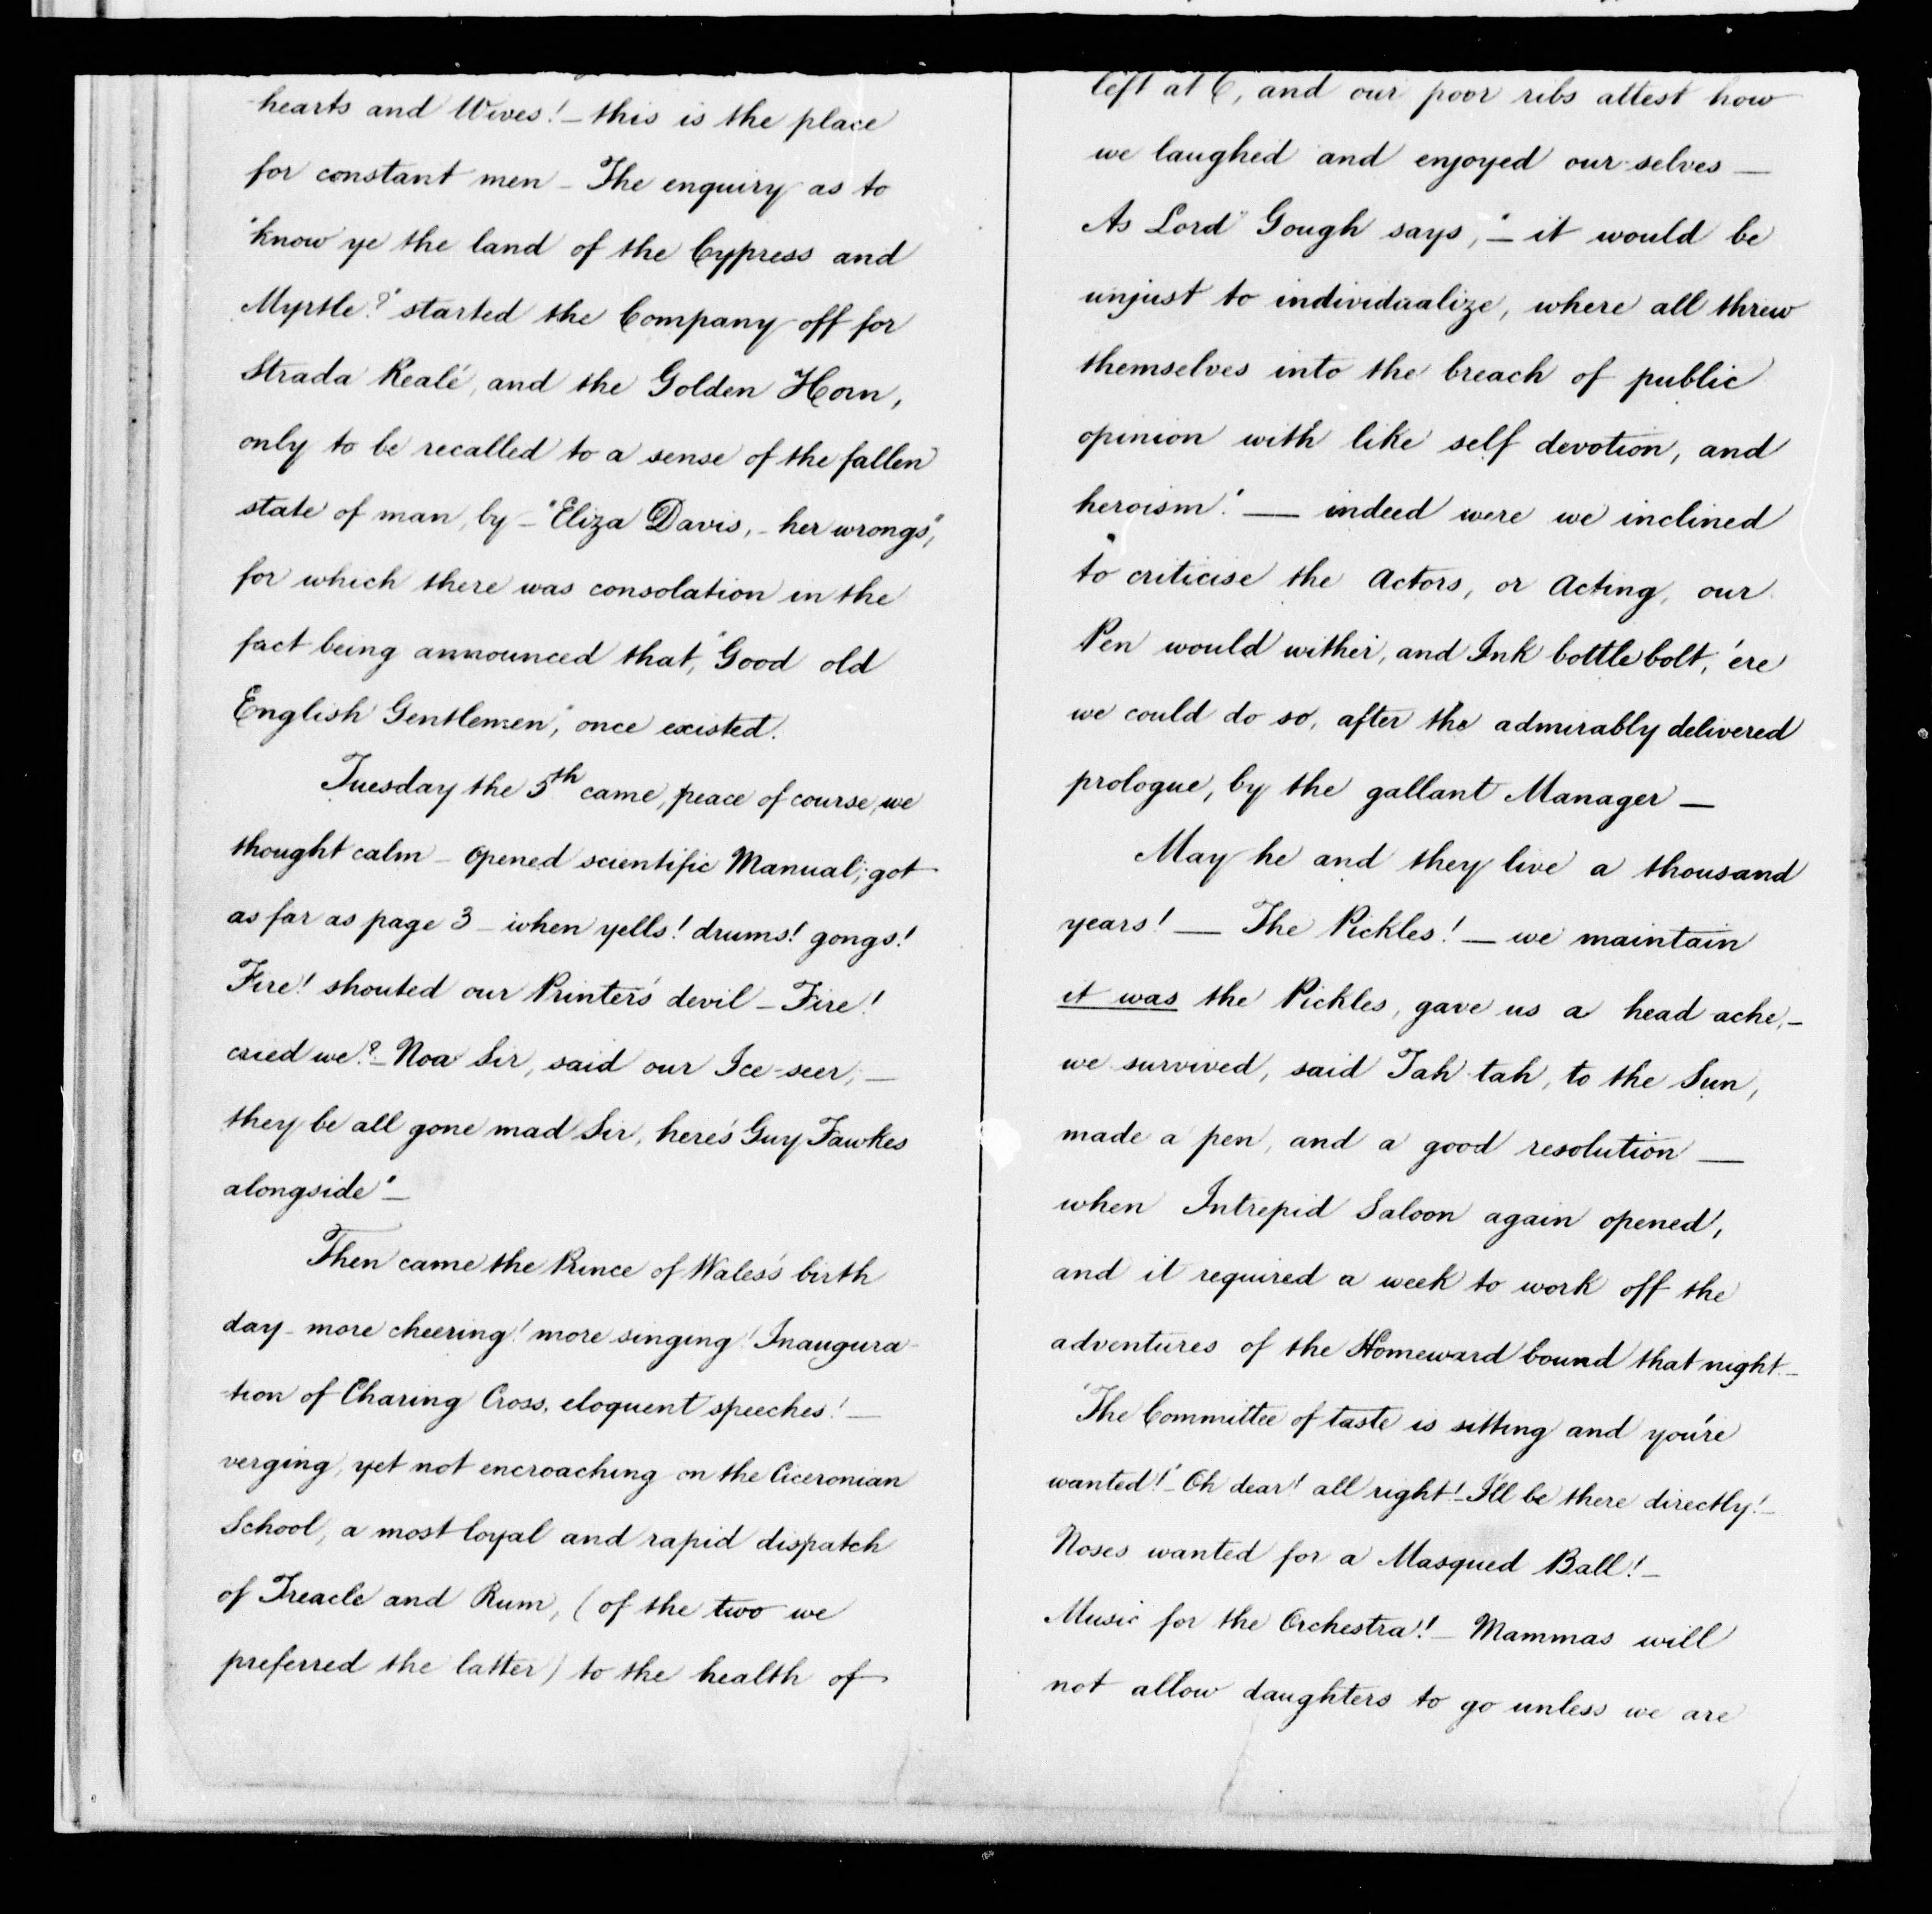 hearts and Wives! – this is the place
for constant men – The enquiry as to
"know ye the land of the Cypress and
Myrtle?" started the Company off for
Strada Realé, and the Golden Horn,
only to be recalled to a sense of the fallen
state of man, by – "Eliza Davis, – her wrongs",
for which there was consolation in the
fact being announced that, "Good old
English Gentlemen", once existed.
Tuesday the 5th came, peace of course, we
thought calm – opened scientific Manual; got
as far as page 3 – when yells! drums! gongs!
Fire! shouted our Printer's devil – Fire!
cried we? – Noa Sir, said our Ice-seer, –
they be all gone mad Sir, here's Guy Fawkes
alongside" –
Then came the Prince of Wales's birth
day – more cheering! more singing! Inaugura-
-tion of Charing Cross, eloquent speeches! –
verging, yet not encroaching on the Ciceronian
School, a most loyal and rapid dispatch
of Treacle and Rum, (of the two we
preferred the latter) to the health of
left at 6, and our poor ribs attest how
we laughed and enjoyed our-selves —
As Lord Gough says, "– it would be
unjust to individualize, where all threw
themselves into the breach of public
opinion with like self devotion, and
heroism". — indeed were we inclined
to criticise the Actors, or Acting, our
Pen would wither, and Ink bottle bolt, 'ere
we could do so, after the admirably delivered
prologue, by the gallant Manager —
May he and they live a thousand
years! — The Pickles! – we maintain
it was the Pickles, gave us a head ache, –
we survived, said Tah tah, to the Sun,
made a pen, and a good resolution —
when Intrepid Saloon again opened,
and it required a week to work off the
adventures of the Homeward bound that night –
"The Committee of taste is sitting and you're
wanted!" – Oh dear! all right! – I'll be there directly! –
Noses wanted for a Masqued Ball! –
Music for the Orchestra! – Mammas will
not allow daughters to go unless we are